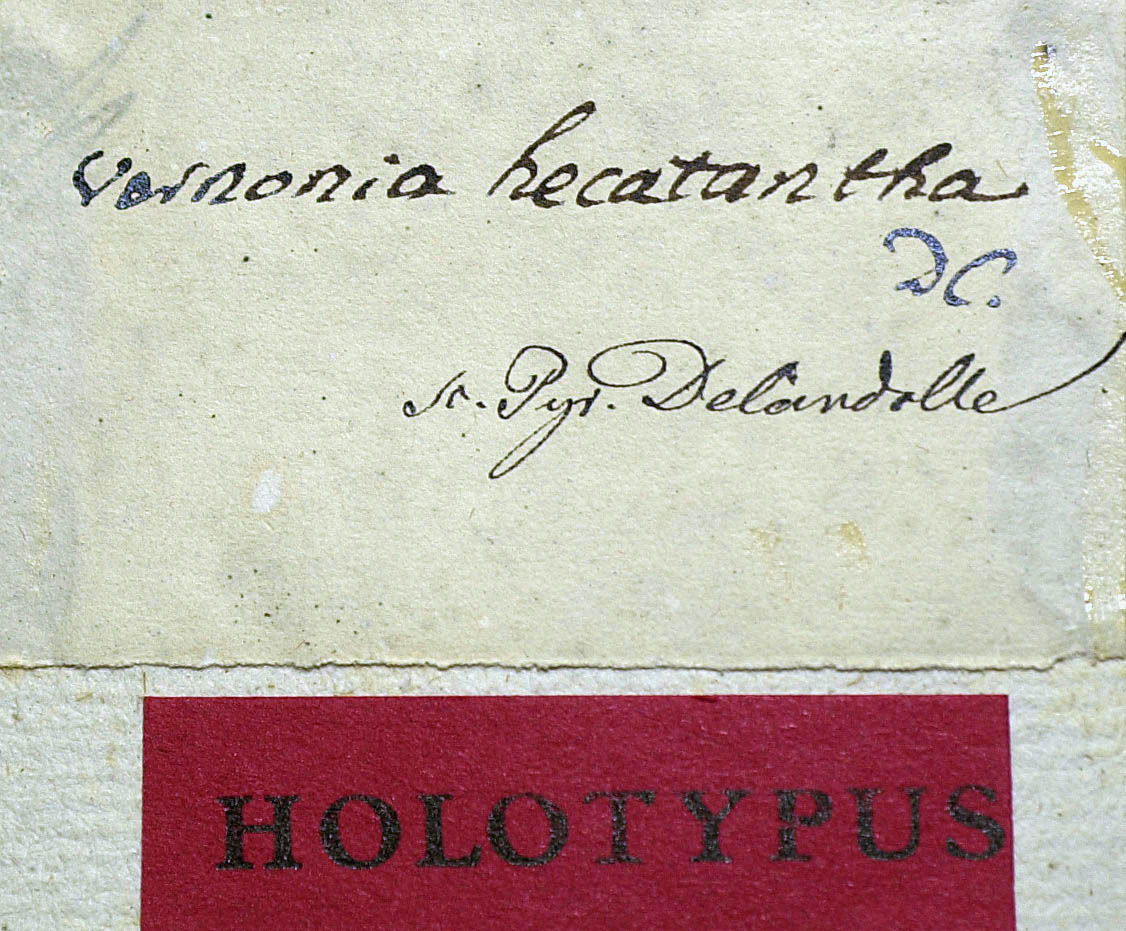 Vernonia hecatantha
DC.
sc. Pyr. DeCandolle
HOLOTYPUS